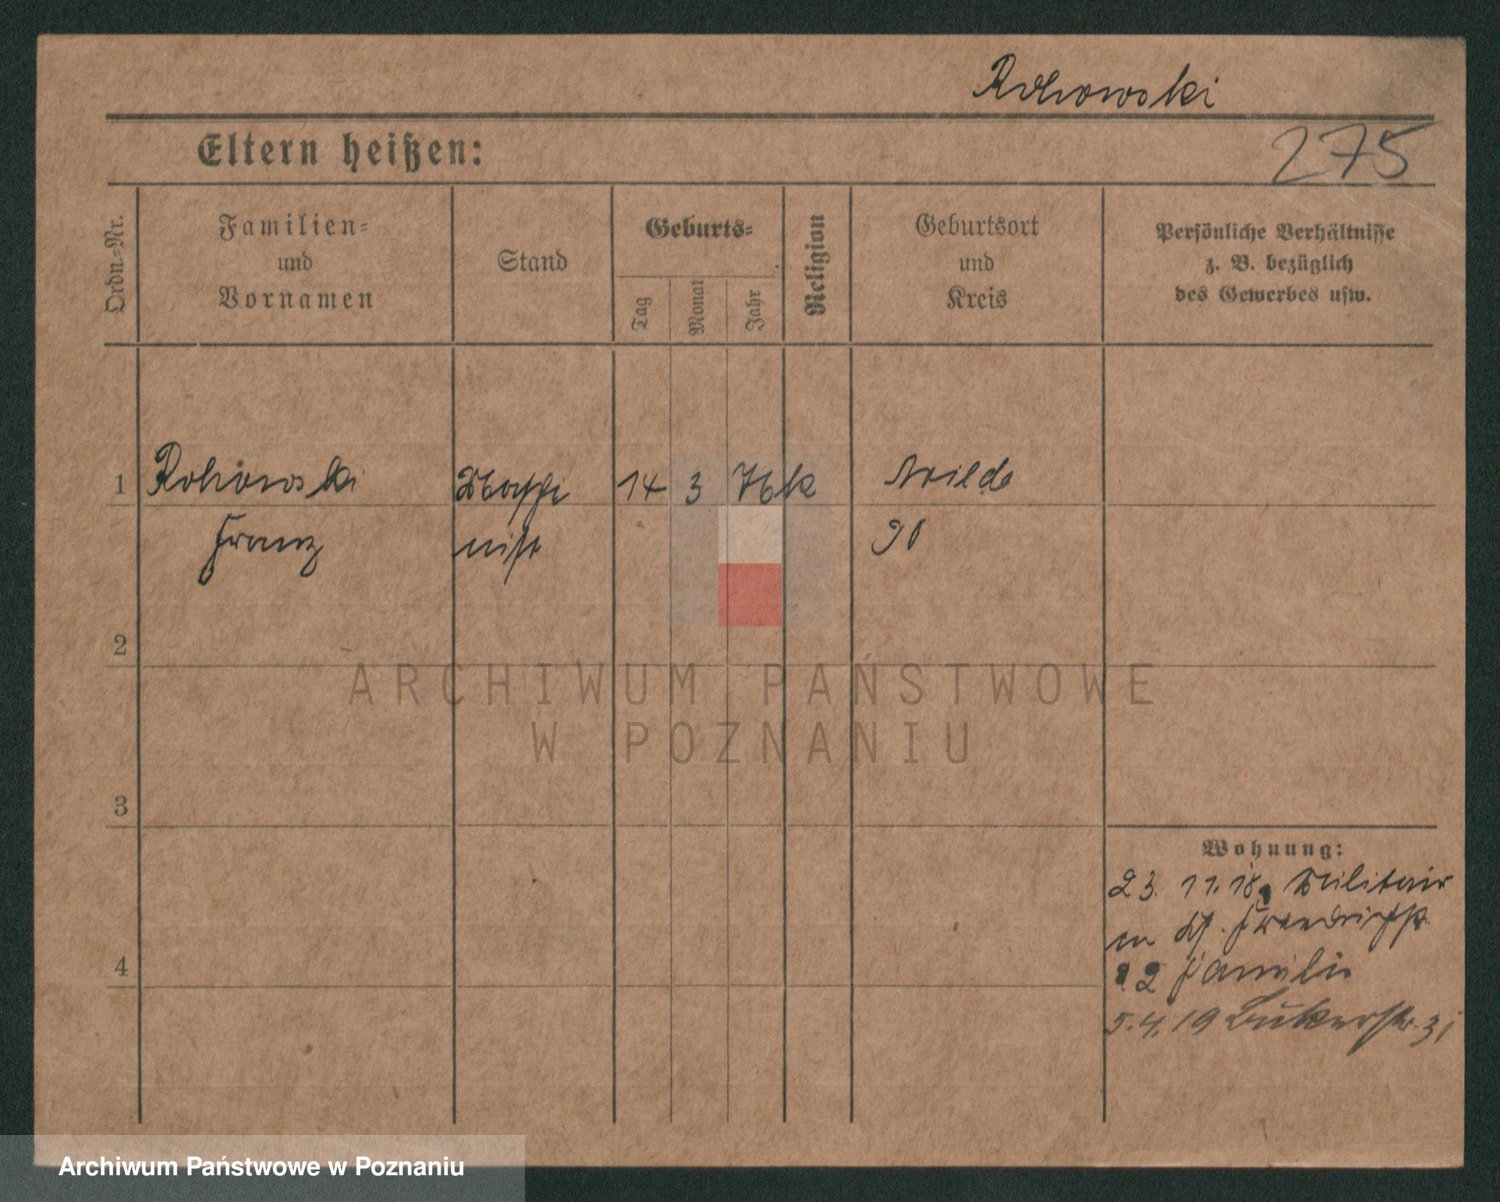 Rohowski
275
Eltern heißen:
Ordn.-Nr.
Familien-
und
Vornamen
Stand
Geburts-
Tag
Monat
Jahr
Religion
Geburtsort
und
Kreis
Persönliche Verhältnisse
z. B. bezüglich
des Gewerbes usw.
1 Rohowski 14 3 76 k Wilda
Franz nist
2
ARCHIWUM PAŃSTWOWE
W POZNANIU
3
Wohnung:
23. 11. 18 Militair
22 Familie
4
5.4.19 Bukerstr. 31
Archiwum Państwowe w Poznaniu